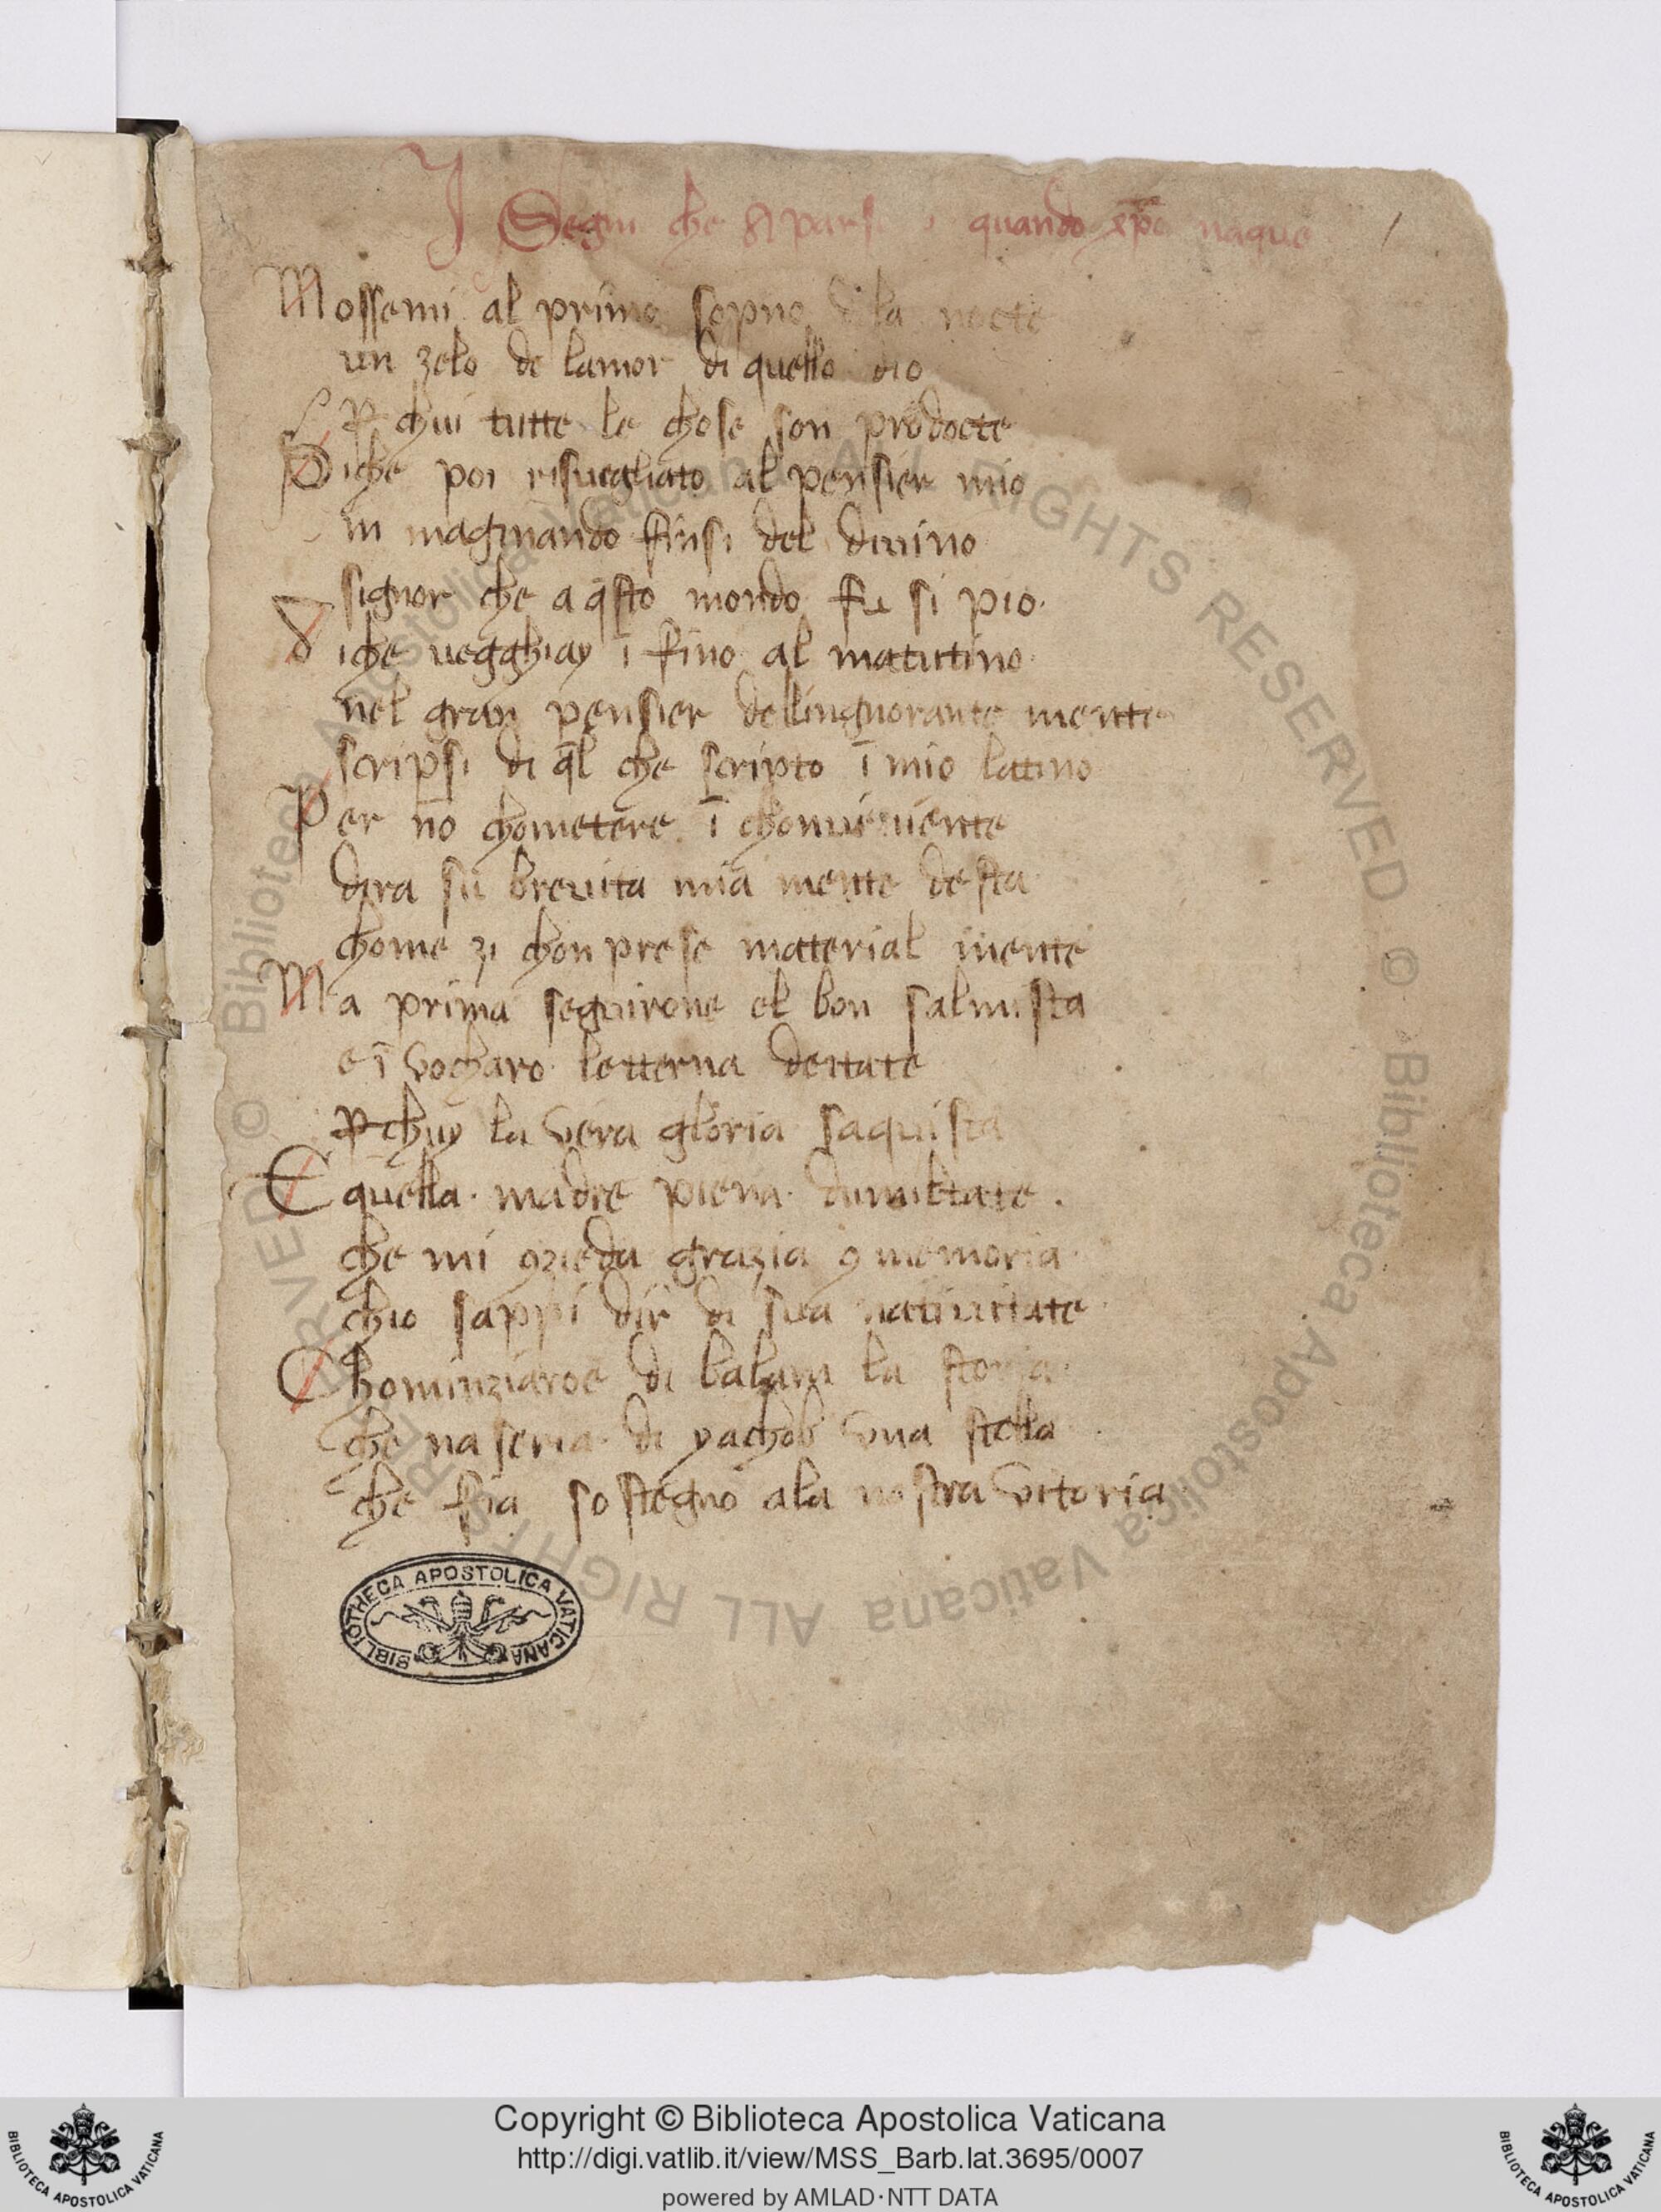 I Segni che aparse quando xp̄o naque
Mossemi al primo sopno dela nocte
un zelo de lamor di quello dio
ꝑ chui tutte le chose son prodocte
Siche poi risuegliato al pensier mio
in maginando finsi del diuino
signor che a q̄sto mondo fu si pio.
Siche uegghiay ī fino al matutino
nel gran pensier dellingnorante mente
scripsi di q̄l che scripto ī mio latino
Per nō chometere ī chonueniente
dira su breuita mia mente desta
chome zi chon prese material mente
Ma prima seguirone el bon salmista
e ī vocharo letterna deitate
ꝑ chuy la vera gloria saquista
E quella. madre piena. dumiltate.
che mi ꝯzieda grazia ꝯ memoria.
chio sappi dir di sua natiuitate
Chominziaroe di balam la storia.
che naseria. di yachob vna stella.
che fia sostegno ala nostra vitoria
BIBLIOTHECA APOSTOLICA VATICANA
© Biblioteca Apostolica Vaticana ALL RIGHTS RESERVED
© Biblioteca Apostolica Vaticana ALL RIGHTS RESERVED
Copyright © Biblioteca Apostolica Vaticana
http://digi.vatlib.it/view/MSS_Barb.lat.3695/0007
powered by AMLAD·NTT DATA
BIBLIOTECA APOSTOLICA VATICANA
BIBLIOTECA APOSTOLICA VATICANA